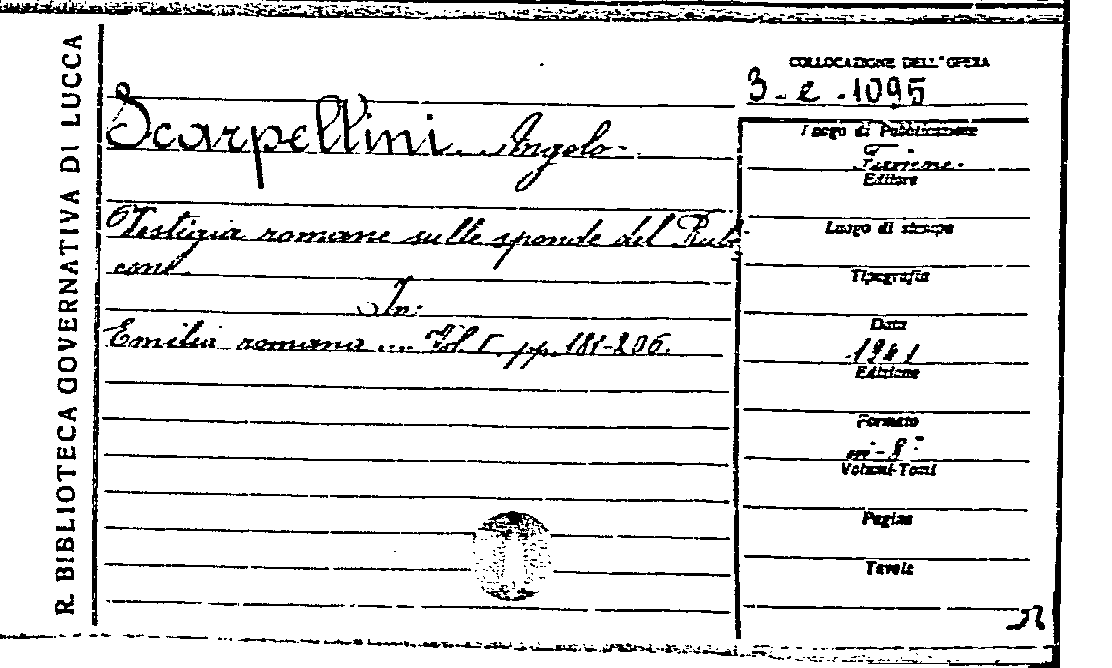 R. BIBLIOTECA GOVERNATIVA DI LUCCA
COLLOCAZIONE DELL'OPERA
3-2-1095
Scarpellini Angelo
Vestigia romane sulle sponde del Rubi-
cone
In:
Emilia romana ... Vol. I. pp. 181-206.
Luogo di Pubblicazione
Firenze
Editore
Luogo di stampa
Tipografia
Data
1941
Edizione
Formato
in-8°
Volumi-Tomi
Pagine
Tavole